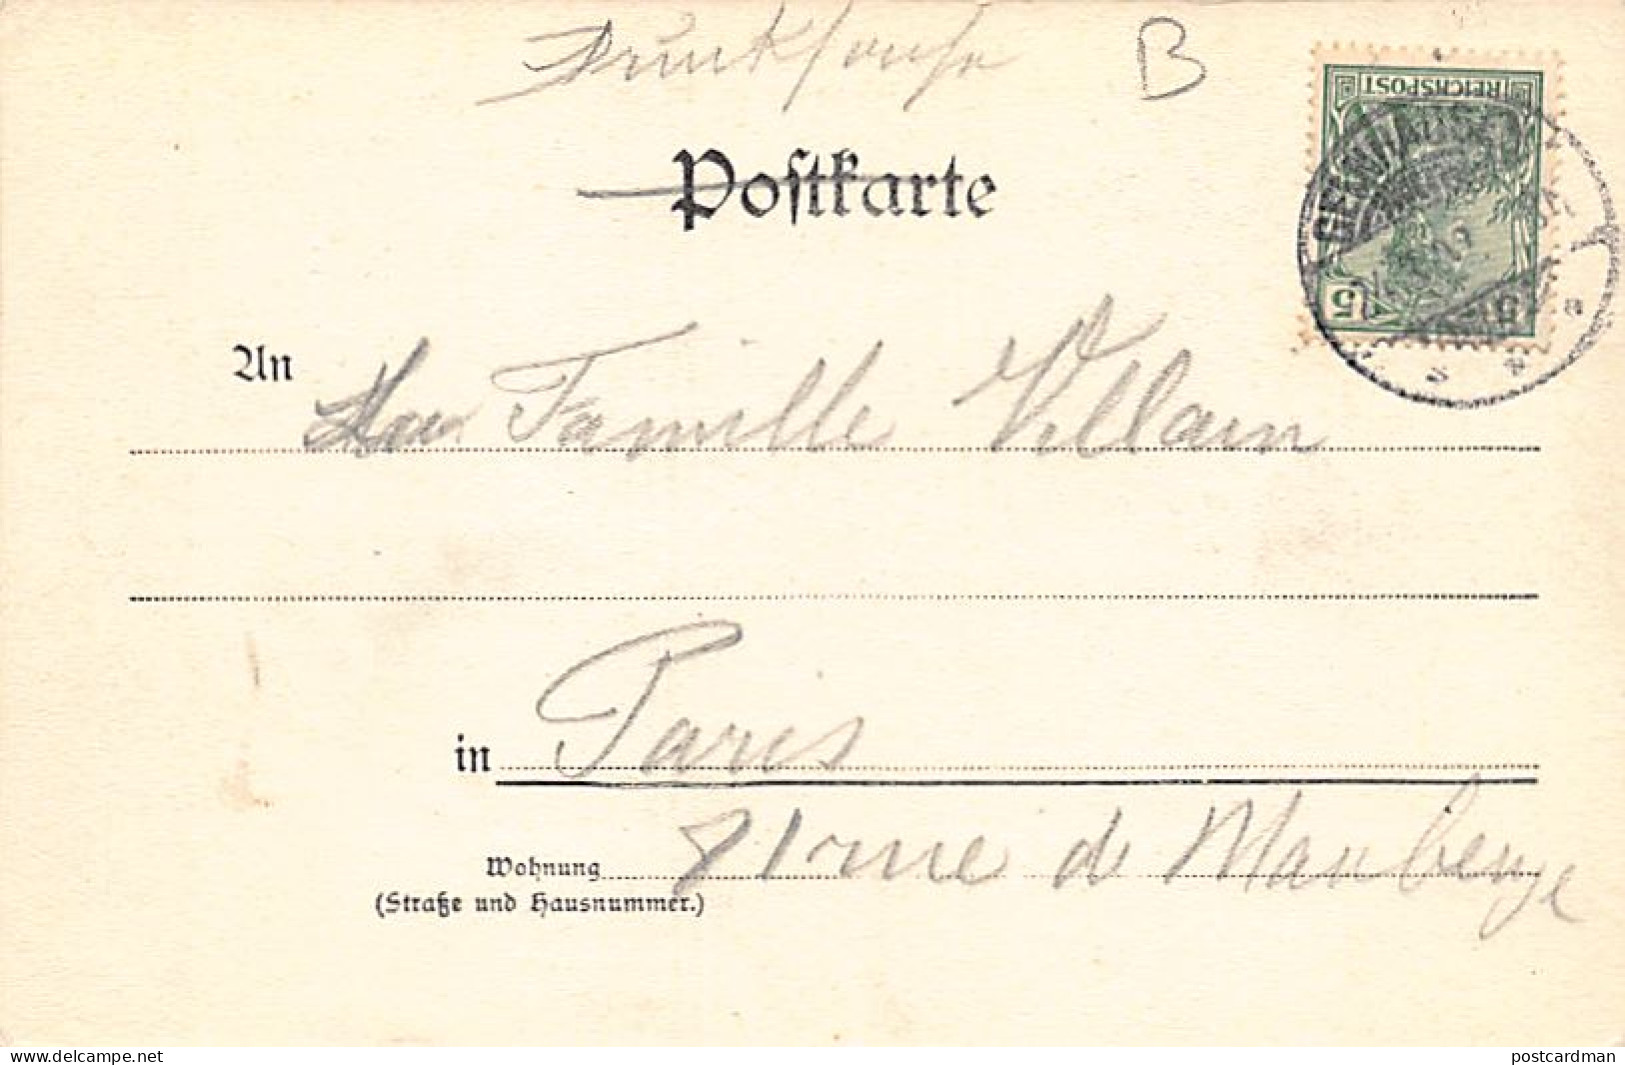 Drucksache
B
REICHSPOST
5 5
Postkarte
An
La Famille Villain
in Paris
81 rue de Maubeuge
Wohnung
(Straße und Hausnummer.)
www.delcampe.net
postcardman